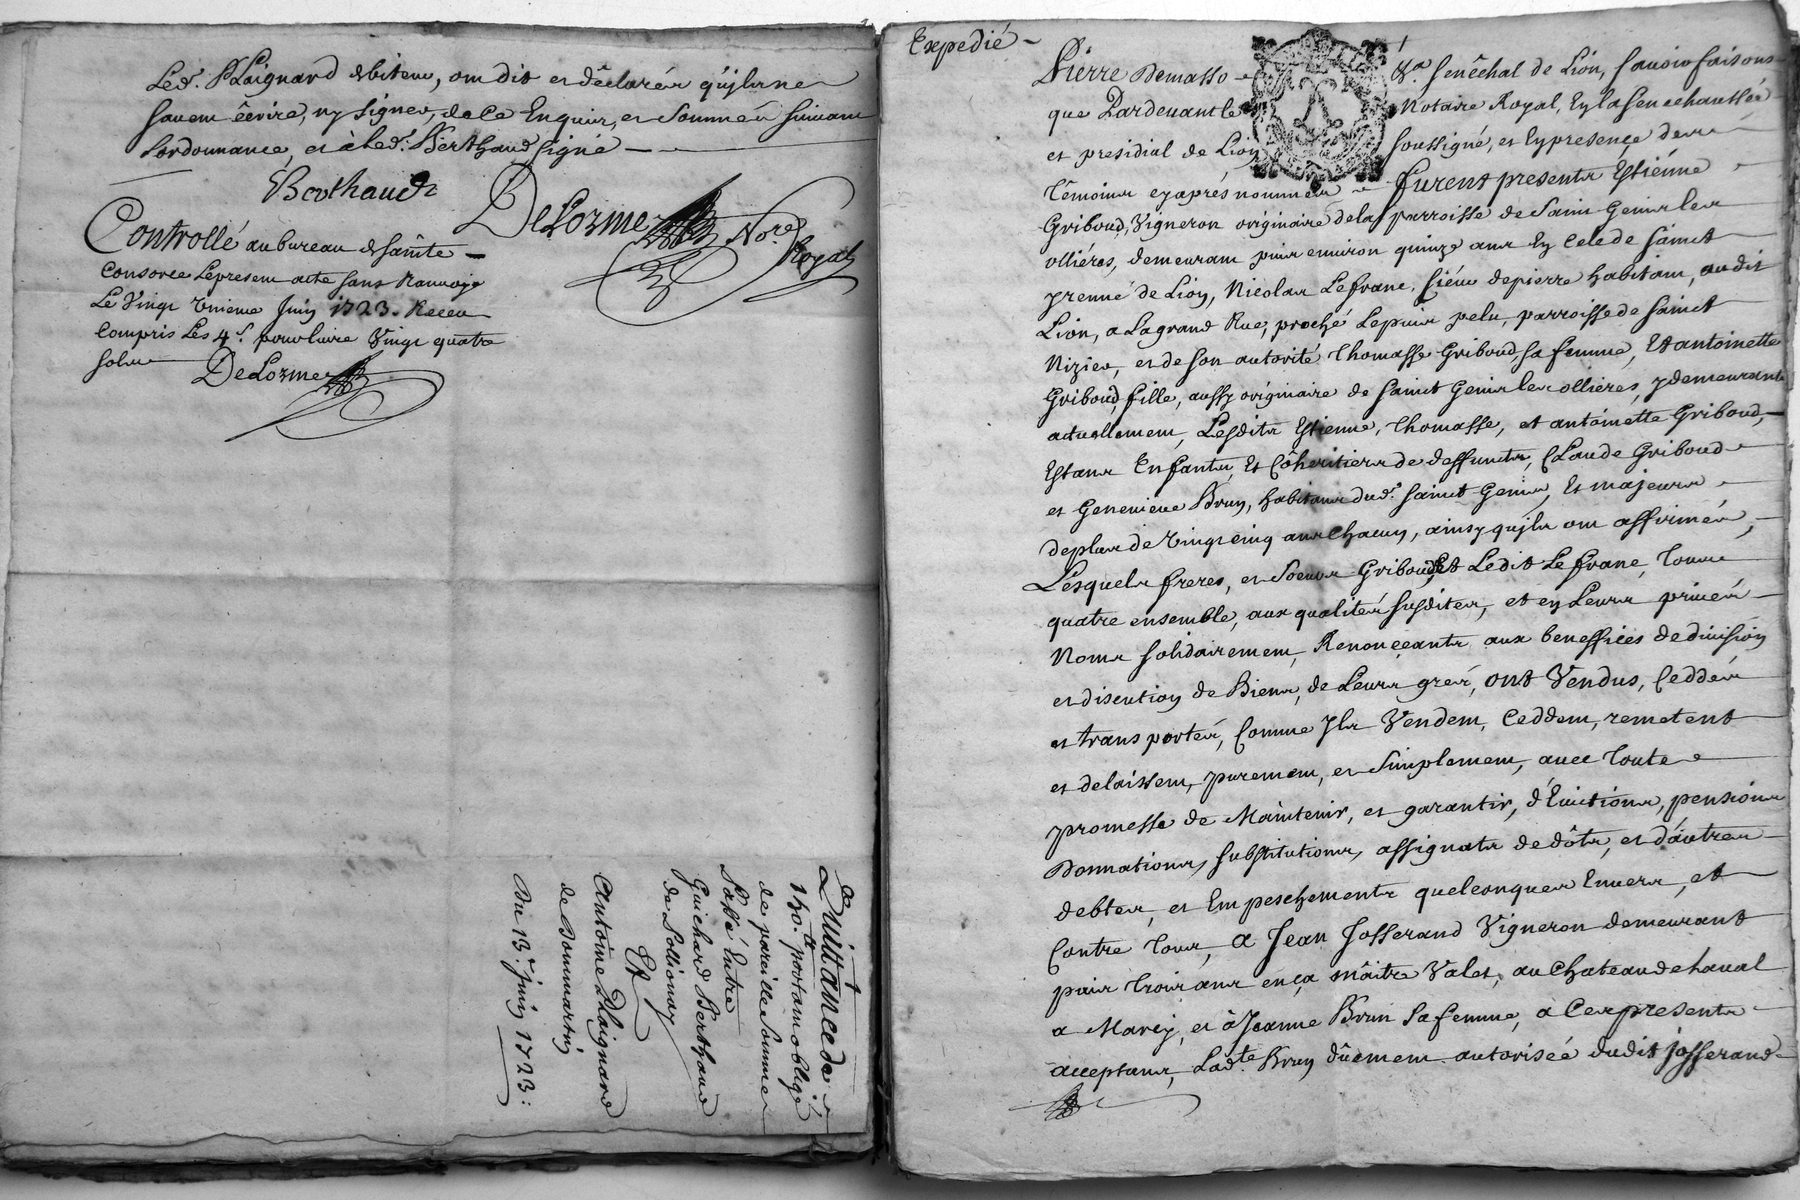 Led. Plaignard debiteur, ont dit et déclaréz qu'ils ne
savent écrire, ny signer, de ce Enquis, et Sommés suivant
Lordonnance, et à led. Berthaud signé
Berthaud
DeLorme Nore. Royal
Controllé au bureau de sainte
Consorce Le present acte sans Renvoye
Le Vingt Unieme Juin 1723. Receu
Compris Les 4 s. pour livre Vingt quatre
sols
DeLorme
Quittance de
150.lt portant oblige
de pareille Somme
Passé Entre
Guichard Berthaud
de Pollionay
Et
Antoine Plaignard
de Dommartin
Du 13e. juin 1723:
Expedié
Pierre Demasso &.a senêchal de Lion, savoir faisons
que Pardevant le Notaire Royal, En la senechaussée
et presidial de Lion soussigné, et En presence des
Témoins cy aprés nommés furent presents Estiénne
Griboud, Vigneron originaire de la parroisse de Saint Genis les
ollières, demeurant puis environ quinze ans En Celle de Sainct
yrenné de Lion, Nicolas Lefranc, siéur de pierre habitant, audit
Lion, a La grand Rue, proché Le puis pelu, parroisse de Sainct
Nizier, et de son autorité Thomasse Griboud sa femme, Et antoinette
Griboud, fille, aussy originaire de Sainct Genis les ollières, y demeurante
actuellement, Lesdits Estienne, Thomasse, et antoinette Griboud,
Estans Enfants, Et Côheritiers de deffuncts, Claude Griboud
et Genevieve Brun, habitans dud. Sainct Genis, Et majeurs
de plus de Vingt cinq ans chacun, ainsy qu'ils ont affirmés,
Lesquels freres, et soeurs Griboud, Et Ledit Lefranc, Tous
quatre ensemble, aux qualités susdites, et en Leurs privés
Noms solidairement, Renonceants aux benefficés de division
et discution de Biens, de Leurs grés, ont Vendus, Ceddés
et transportés, Comme Ils Vendent, Ceddent, remetent
et delaissent, purement, et simplement, avec Toute
promesse de Maintenir, et garantir, d'Evictions, pensions
Donnations, substitutions, assignats de dôts, et d'autres
debtes, et Empeschements quelconques Envers, et
Contre Tous, a Jean Josserand Vigneron demeurant
puis Trois ans en ça mâitre Valet, au Chateau de haval
a Marcy, et à Jeanne Brun sa femme, a Ce presents
acceptans, Lad.te Brun dûement autorisée dudit Josserand